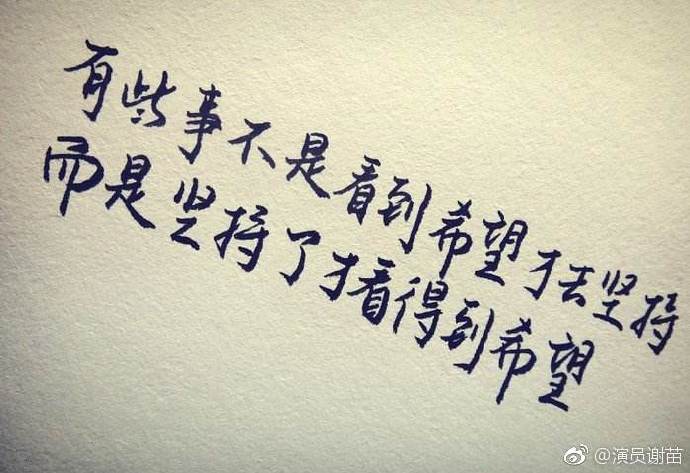 有些事不是看到希望才去坚持
而是坚持了才看得到希望
@演员谢苗